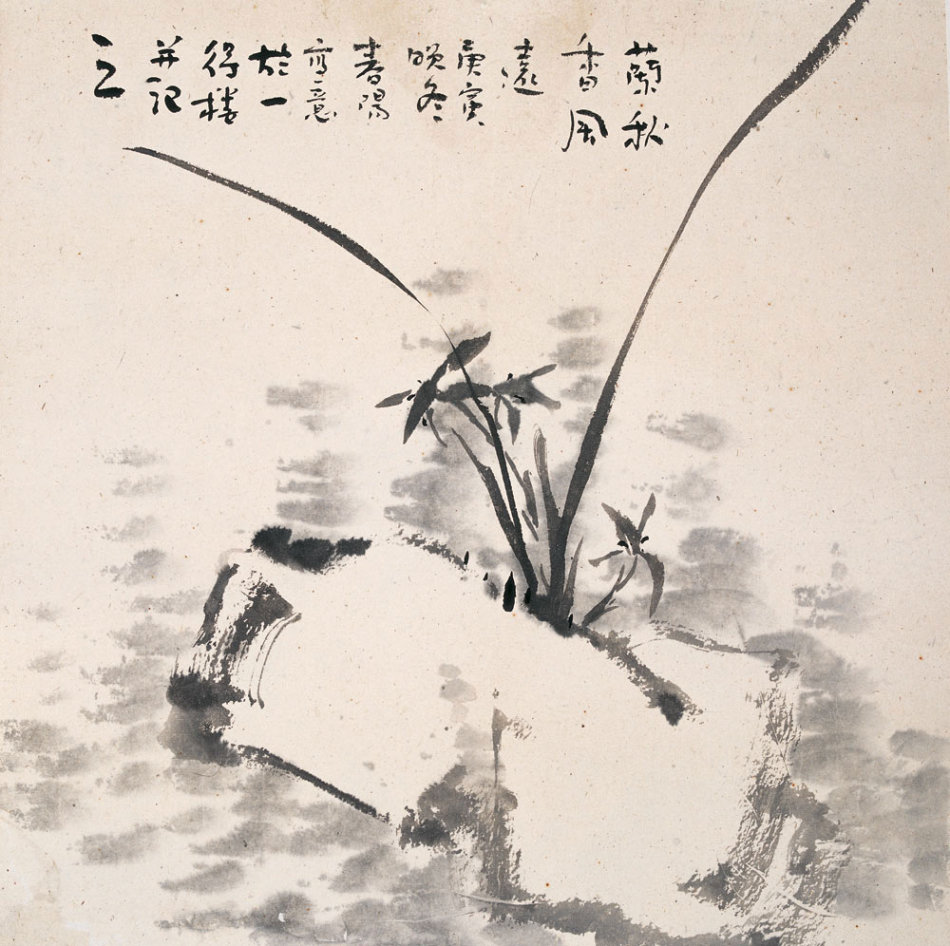 蘭秋
香風
遠
庚寅
晚冬
春陽
寫意
於一
得楼
并記
之